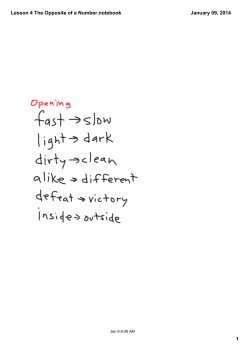 Lesson 4 The Opposite of a Number.notebook
January 09, 2014
Opening
fast → slow
light → dark
dirty → clean
alike → different
defeat → victory
inside → outside
Jan 9-9:59 AM
1